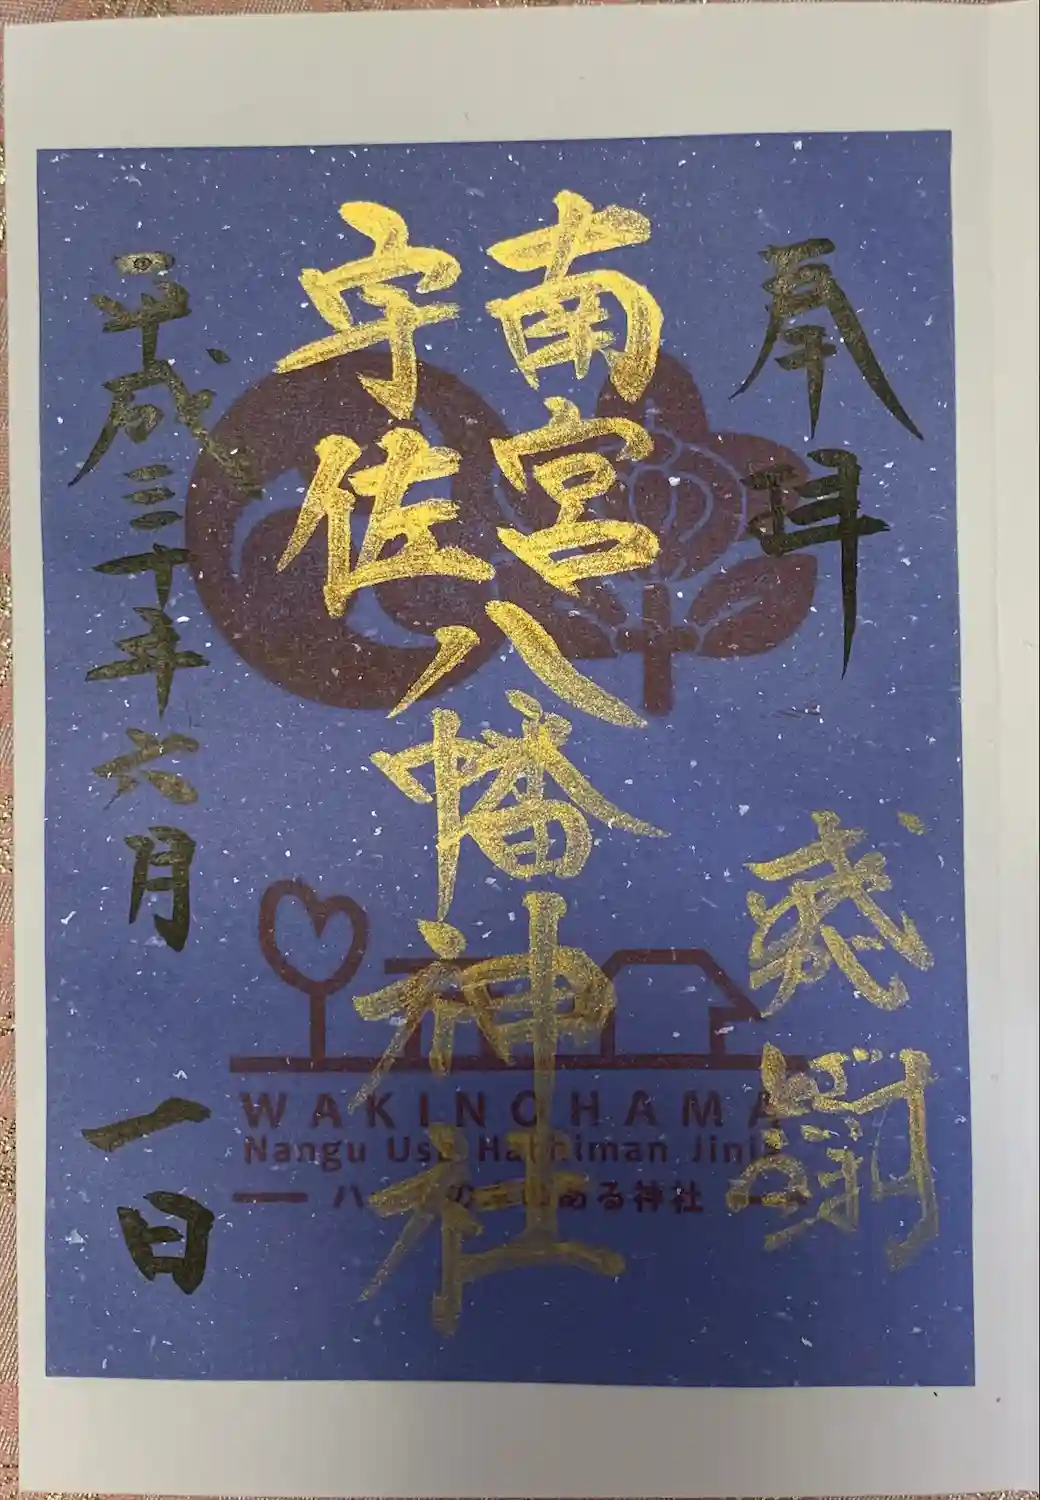 奉拝
南宮
宇佐
八幡神社
平成三十年六月一日
WAKINOHAMA
Nangu Usa Hachiman Jinja
ある神社